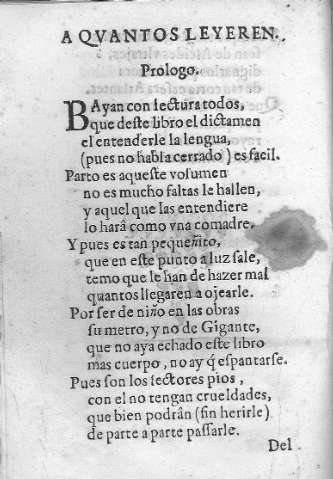 A QVANTOS LEYEREN.
Prologo.
BAyan con lectura todos,
que deste libro el dictamen
el entenderle la lengua,
(pues no habla cerrado) es facil.
Parto es aqueste volumen
no es mucho faltas le hallen,
y aquel que las entendiere
lo harâ como vna comadre.
Y pues es tan pequeñito,
que en este punto a luz sale,
temo que le han de hazer mal
quantos llegaren a ojearle.
Por ser de niño en las obras
su metro, y no de Gigante,
que no aya echado este libro
mas cuerpo, no ay q̃ espantarse.
Pues son los lectores pios,
con el no tengan crueldades,
que bien podrân (sin herirle)
de parte a parte passarle.
Del